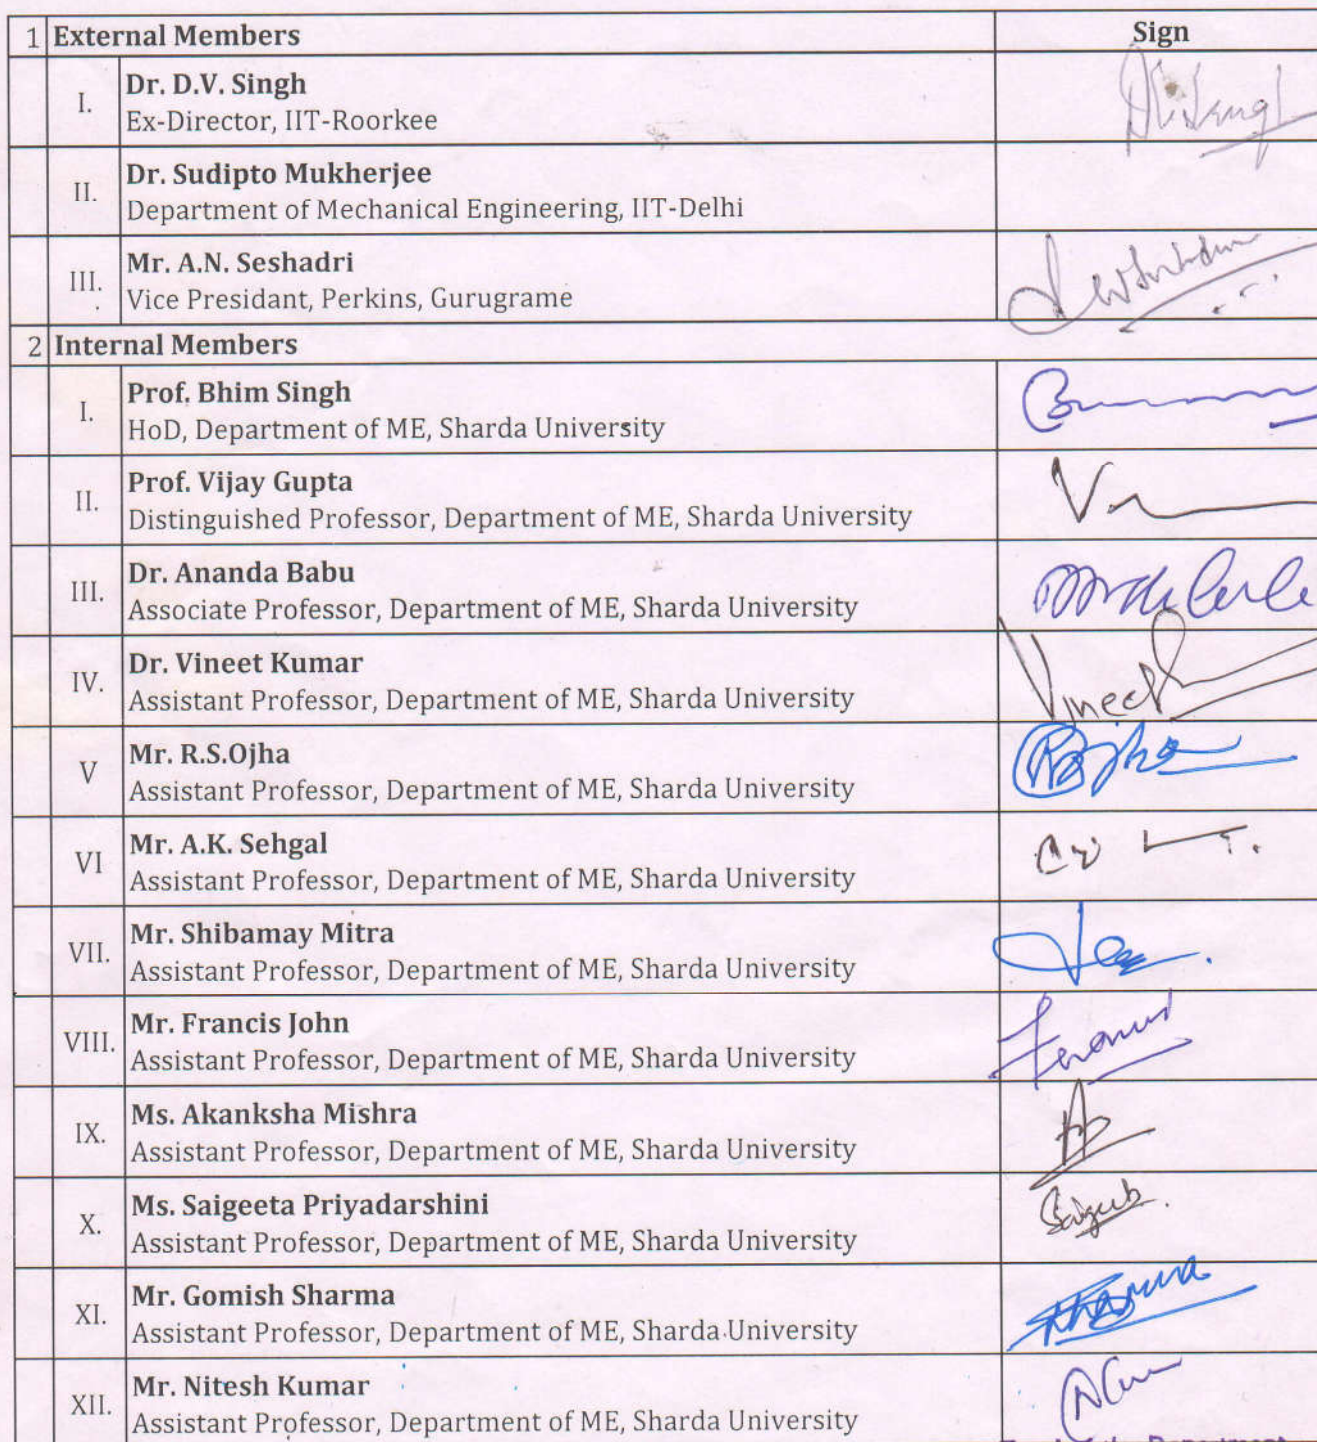 1 External Members Sign
I. Dr. D.V. Singh
Ex-Director, IIT-Roorkee
II. Dr. Sudipto Mukherjee
Department of Mechanical Engineering, IIT-Delhi
III. Mr. A.N. Seshadri
Vice Presidant, Perkins, Gurugrame
2 Internal Members
I. Prof. Bhim Singh
HoD, Department of ME, Sharda University
II. Prof. Vijay Gupta
Distinguished Professor, Department of ME, Sharda University
III. Dr. Ananda Babu
Associate Professor, Department of ME, Sharda University
IV. Dr. Vineet Kumar Vineet
Assistant Professor, Department of ME, Sharda University
V Mr. R.S.Ojha
Assistant Professor, Department of ME, Sharda University
VI Mr. A.K. Sehgal
Assistant Professor, Department of ME, Sharda University
VII. Mr. Shibamay Mitra
Assistant Professor, Department of ME, Sharda University
VIII. Mr. Francis John
Assistant Professor, Department of ME, Sharda University
IX. Ms. Akanksha Mishra
Assistant Professor, Department of ME, Sharda University
X. Ms. Saigeeta Priyadarshini
Assistant Professor, Department of ME, Sharda University
XI. Mr. Gomish Sharma
Assistant Professor, Department of ME, Sharda University
XII. Mr. Nitesh Kumar
Assistant Professor, Department of ME, Sharda University